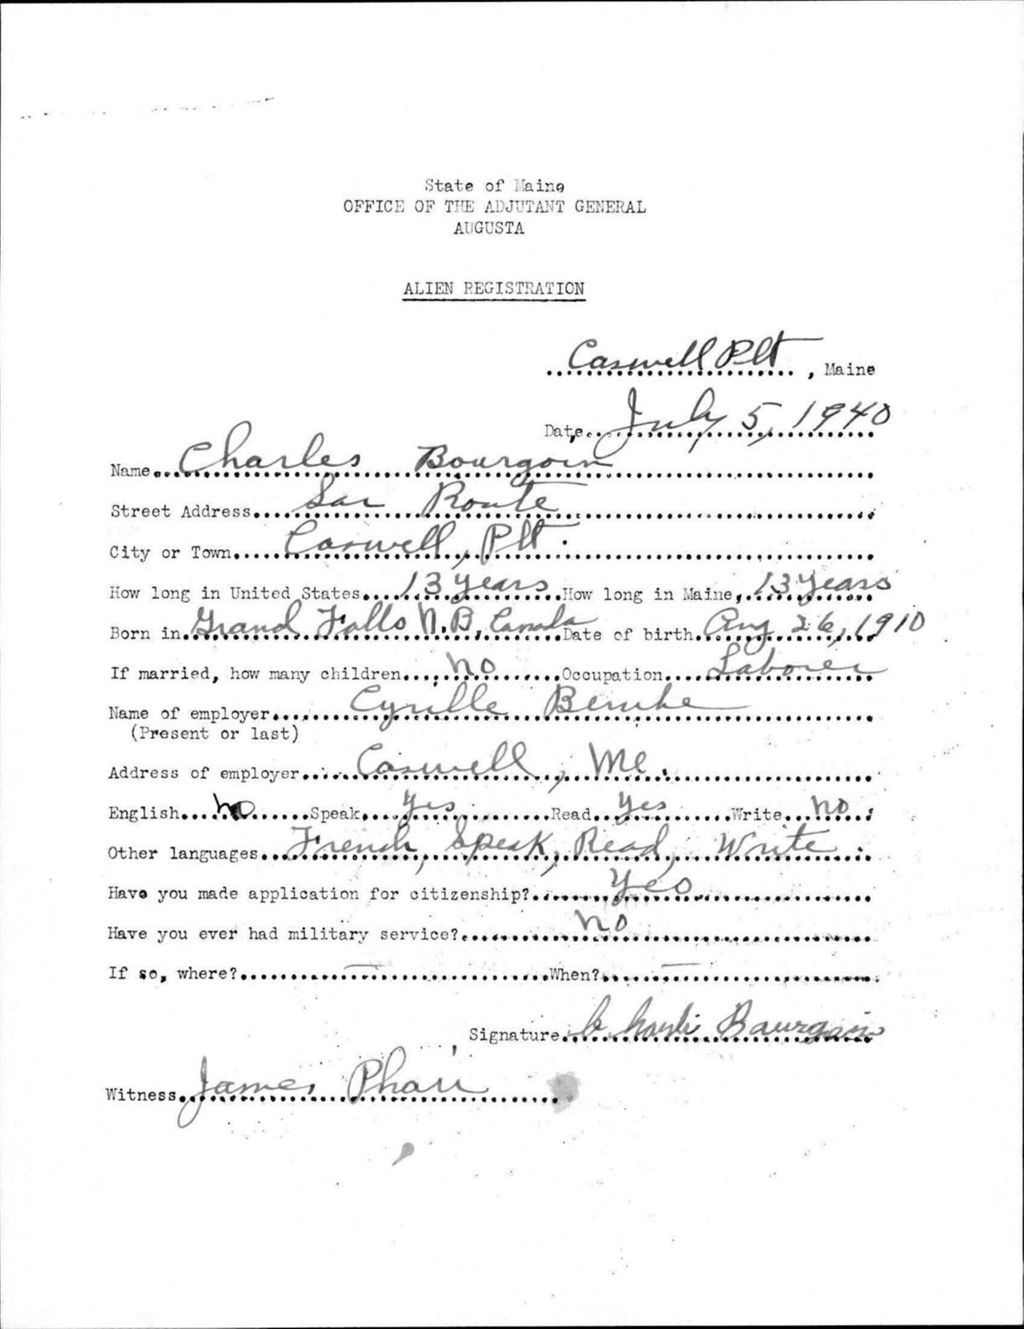 State of Maine
OFFICE OF THE ADJUTANT GENERAL
AUGUSTA
ALIEN REGISTRATION
Caswell Plt, Maine
Date July 5, 1940
Name Charles Bourgoin
Street Address Sar Route
City or Town Caswell, Plt.
How long in United States 13 years How long in Maine 13 years
Born in Grand Falls N.B. Canada Date of birth Aug 26, 1910
If married, how many children no Occupation Laborer
Name of employer Cyrille
(Present or last)
Address of employer Caswell, Me.
English no Speak Yes Read Yes Write no
Other languages French, Speak, Read, Write
Have you made application for citizenship? Yes
Have you ever had military service? no
If so, where? — When? —
Signature Charli Bourgoin
Witness James Phair